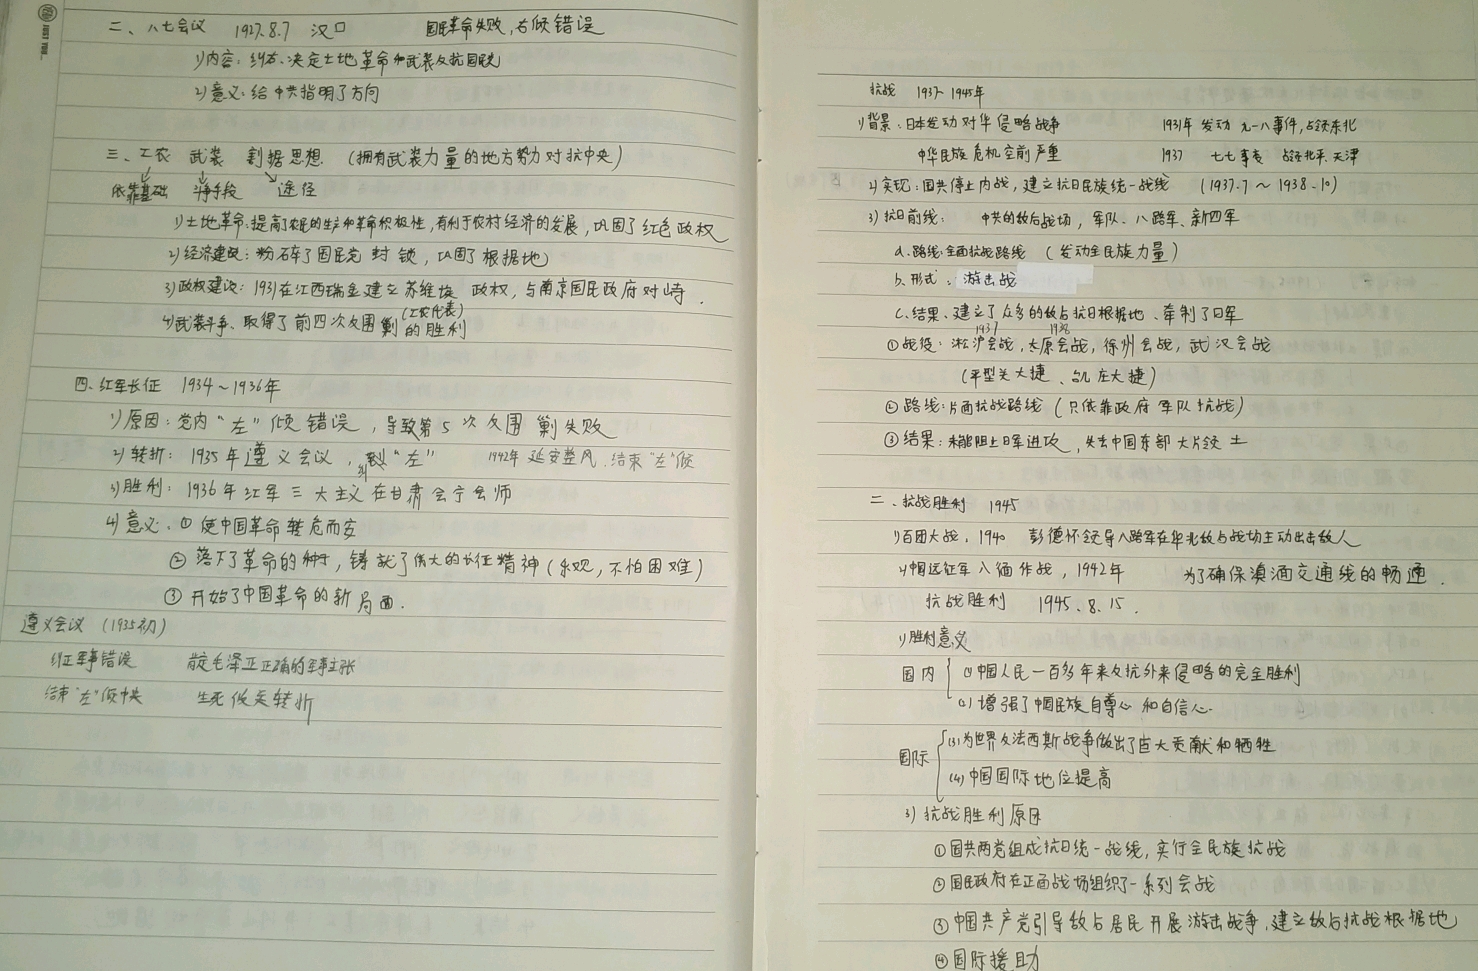 二、八七会议 1927.8.7 汉口 国民革命失败,右倾错误
1)内容:纠右、决定土地革命和武装反抗国民党
2)意义:给中共指明了方向
三、工农 武装 割据思想 (拥有武装力量的地方势力对抗中央)
依靠基础 斗争手段 途径
1)土地革命:提高了农民的生产和革命积极性,有利于农村经济的发展,巩固了红色政权
2)经济建设:粉碎了国民党封锁,巩固了根据地
3)政权建设:1931在江西瑞金建立苏维埃政权,与南京国民政府对峙.
(工农代表)
4)武装斗争、取得了前四次反围剿的胜利
四、红军长征 1934~1936年
1)原因:党内“左”倾错误,导致第5次反围剿失败
2)转折:1935年遵义会议,“左” 1942年延安整风.结束“左”倾
3)胜利:1936年红军三大主义在甘肃会宁会师
4)意义、①使中国革命转危而安
②落下了革命的种子,铸就了伟大的长征精神(乐观,不怕困难)
③开始了中国革命的新局面.
遵义会议 (1935初)
纠正军事错误 肯定毛泽正正确的军事主张
结束“左”倾中央 生死攸关转折
抗战 1937~1945年
1)背景:日本发动对华侵略战争 1931年发动九一八事件,占领东北
中华民族危机空前严重 1937 七七事变 占领北平、天津
2)实现:国共停止内战,建立抗日民族统一战线 (1937.7~1938.10)
3)抗日前线: 中共的敌后战场,军队、八路军、新四军
a.路线:全面抗战路线 (发动全民族力量)
b.形式:游击战
c.结果、建立了众多的敌占抗日根据地、牵制了日军
1937 1938
①战役:淞沪会战,太原会战,徐州会战,武汉会战
(平型关大捷、台儿庄大捷)
②路线:片面抗战路线(只依靠政府军队抗战)
③结果:未能阻止日军进攻,失去中国东部大片领土
二、抗战胜利 1945
1)百团大战,1940 彭德怀领导八路军在华北敌占战场主动出击敌人
2)中国远征军入缅作战,1942年 为了确保滇湎交通线的畅通.
抗战胜利 1945.8.15.
1)胜利意义
国内 (1)中国人民一百多年来反抗外来侵略的完全胜利
(2)增强了中国民族自尊心和自信心.
国际 (3)为世界反法西斯战争做出了巨大贡献和牺牲
(4)中国国际地位提高
3)抗战胜利原因
①国共两党组成抗日统一战线,实行全民族抗战
②国民政府在正面战场组织了一系列会战
③中国共产党引导敌占居民开展游击战争,建立敌后抗战根据地
④国际援助